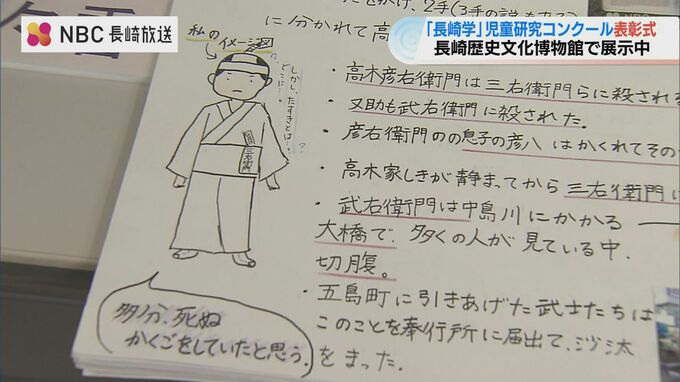 NBC 長崎放送
「長崎学」児童研究コンクール表彰式
長崎歴史文化博物館で展示中
に分かれて高
私の
イメージ図
しかし、たすきとは…?
どこに…?
三右衛門
・高木彦右衛門は三右衛門らに殺される
・又助も武右衛門に殺された。
・彦右衛門のの息子の彦八はかくれてその
・高木家しきが静まってから三右衛門
・武右衛門は中島川にかかる
大橋で、多くの人が見ている中、
切腹。
・五島町に引きあげた武士たちは
このことを奉行所に届出て、沙汰
をまった。
多分、死ぬ
かくごをしていたと思う。